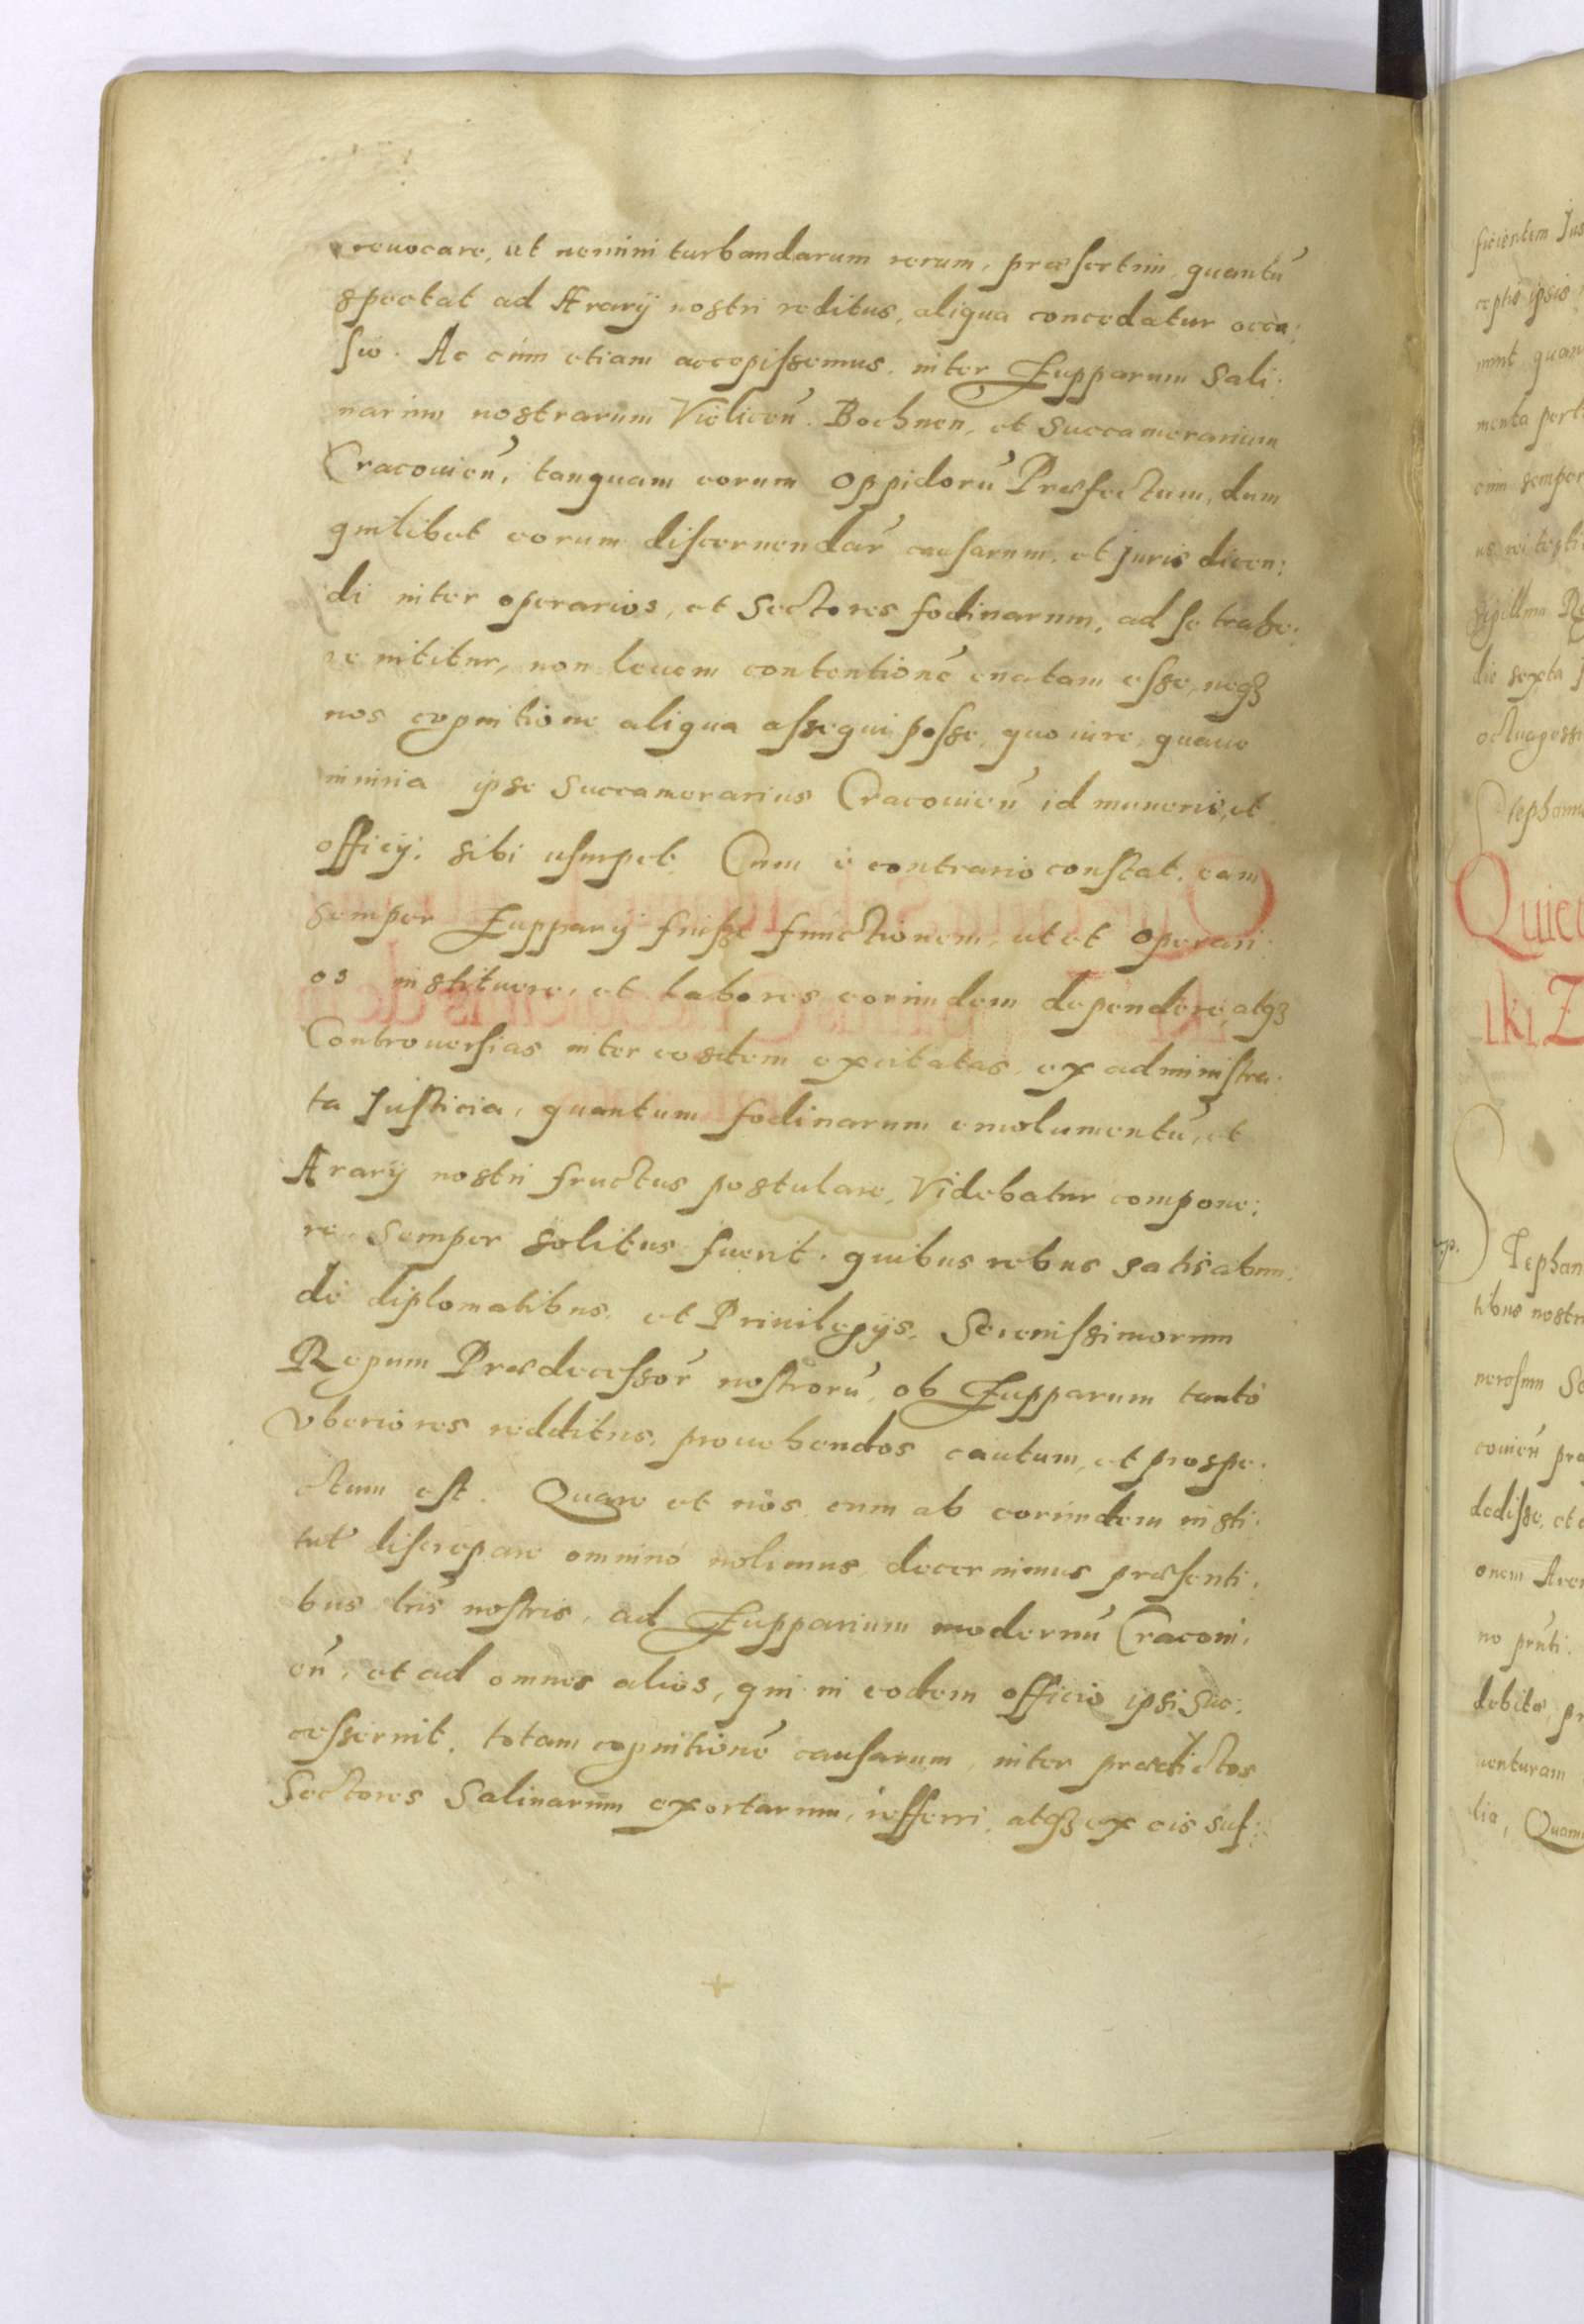 reuocare, ut nemini turbandarum rerum, præsertim, quantū
spectat ad Ærarÿ nostri reditus, aliqua concedatur occa:
sio. Ac cùm etiam accepissemus, inter Zupparum Sali:
narium nostrarum Vieliceñ. Bochnen, et Succamerarium
Cracouieñ, tanquam eorum Oppidorū Præfectum, dum
quilibet eorum discernendar̃ causarum, et Juris dicen:
di inter operarios, et Sectores fodinarum, ad se trahe:
re nititur, non leuem contentionē enatam esse, neqȝ
nos cognitione aliqua assequi posse, quo iure, quaue
iniuria ipse Succamerarius Cracouieñ id muneris, et
officÿ: sibi usurpet. Cum è contrario constat, eam
semper Zupparÿ fuisse functionem, ut et operari:
os instituere, et labores eorundem dependere, atqȝ
Controuersias inter eosdem excitatas, ex administra:
ta Justicia, quantum fodinarum emolumentū, et
Ærarÿ nostri fructus postulare, Videbatur compone:
re semper solitus fuerit. quibus rebus satis abun:
de diplomatibus, et Priuilegÿs, Serenissimorum
Regum Prædecessor̃ nostrorū, ob Zupparum tantò
vberiores redditus, prouehendos cautum, et prospe:
ctum est. Quare et nos, cum ab eorundem insti:
tut̃ discrepare omninò nolimus, decernimus præsenti:
bus lr̃is nostris, ad Zupparium modernū Cracoui:
eñ, et ad omnes alios, qui in eodem officio ipsi suc:
cesserint, totam cognitionē causarum, inter prædictos
Sectores Salinarum exortarum, referri, atqȝ ex eis suf:
ficientem Jus
ceptis ipsis
menta perti
enim semper
sigillum
die sexta
octuagessi
Stephanus
Quiet
iki Z
Stephan
tibus nostri
couieñ pra
dedisse, et
onem
debita pr
uenturam
lia, Quam